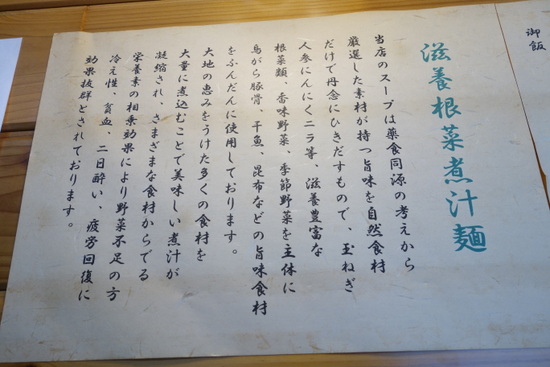 御飯
滋養根菜煮汁麺
当店のスープは薬食同源の考えから
厳選した素材が持つ旨味を自然食材
だけで丹念にひきだすもので、玉ねぎ
人参にんにくニラ等、滋養豊富な
根菜類、香味野菜、季節野菜を主体に
鳥がら豚骨、干魚、昆布などの旨味食材
をふんだんに使用しております。
大地の恵みをうけた多くの食材を
大量に煮込むことで美味しい煮汁が
凝縮され、さまざまな食材からでる
栄養素の相乗効果により野菜不足の方
冷え性、貧血、二日酔い、疲労回復に
効果抜群とされております。